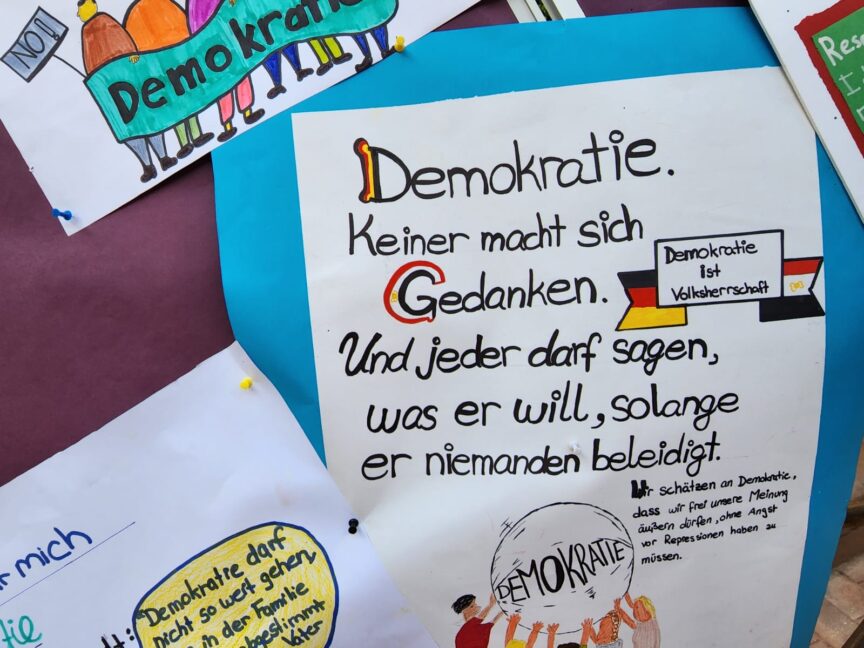 NO!
Demokratie
Rese
I
Demokratie.
Keiner macht sich
Gedanken.
Demokratie
ist
Volksherrschaft
Und jeder darf sagen,
was er will, solange
er niemanden beleidigt.
Wir schätzen an Demokratie,
dass wir frei unsere Meinung
äußern dürfen, ohne Angst
vor Repressionen haben zu
müssen.
DEMOKRATIE
mich
"Demokratie darf
nicht so weit gehen,
in der Familie
abgestimmt
Vater